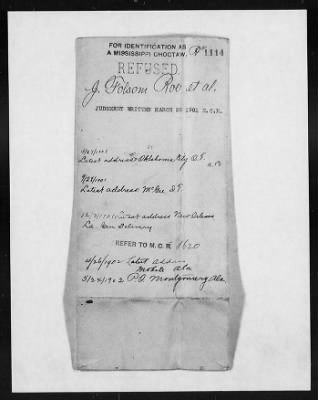 FOR IDENTIFICATION AS
A MISSISSIPPI CHOCTAW. R# 1114
REFUSED.
J. Folsom Roe et al.
JUDGMENT WRITTEN MARCH 1901
Latest address Oklahoma City O.T.
7/29/1901
Latest address McGee I.T.
Latest address New Orleans
La Gen Delivery
REFER TO M.C.R. 1620
4/26/1902 Latest Address
Mobile Ala
5/24/1902 P.O. Montgomery Ala.